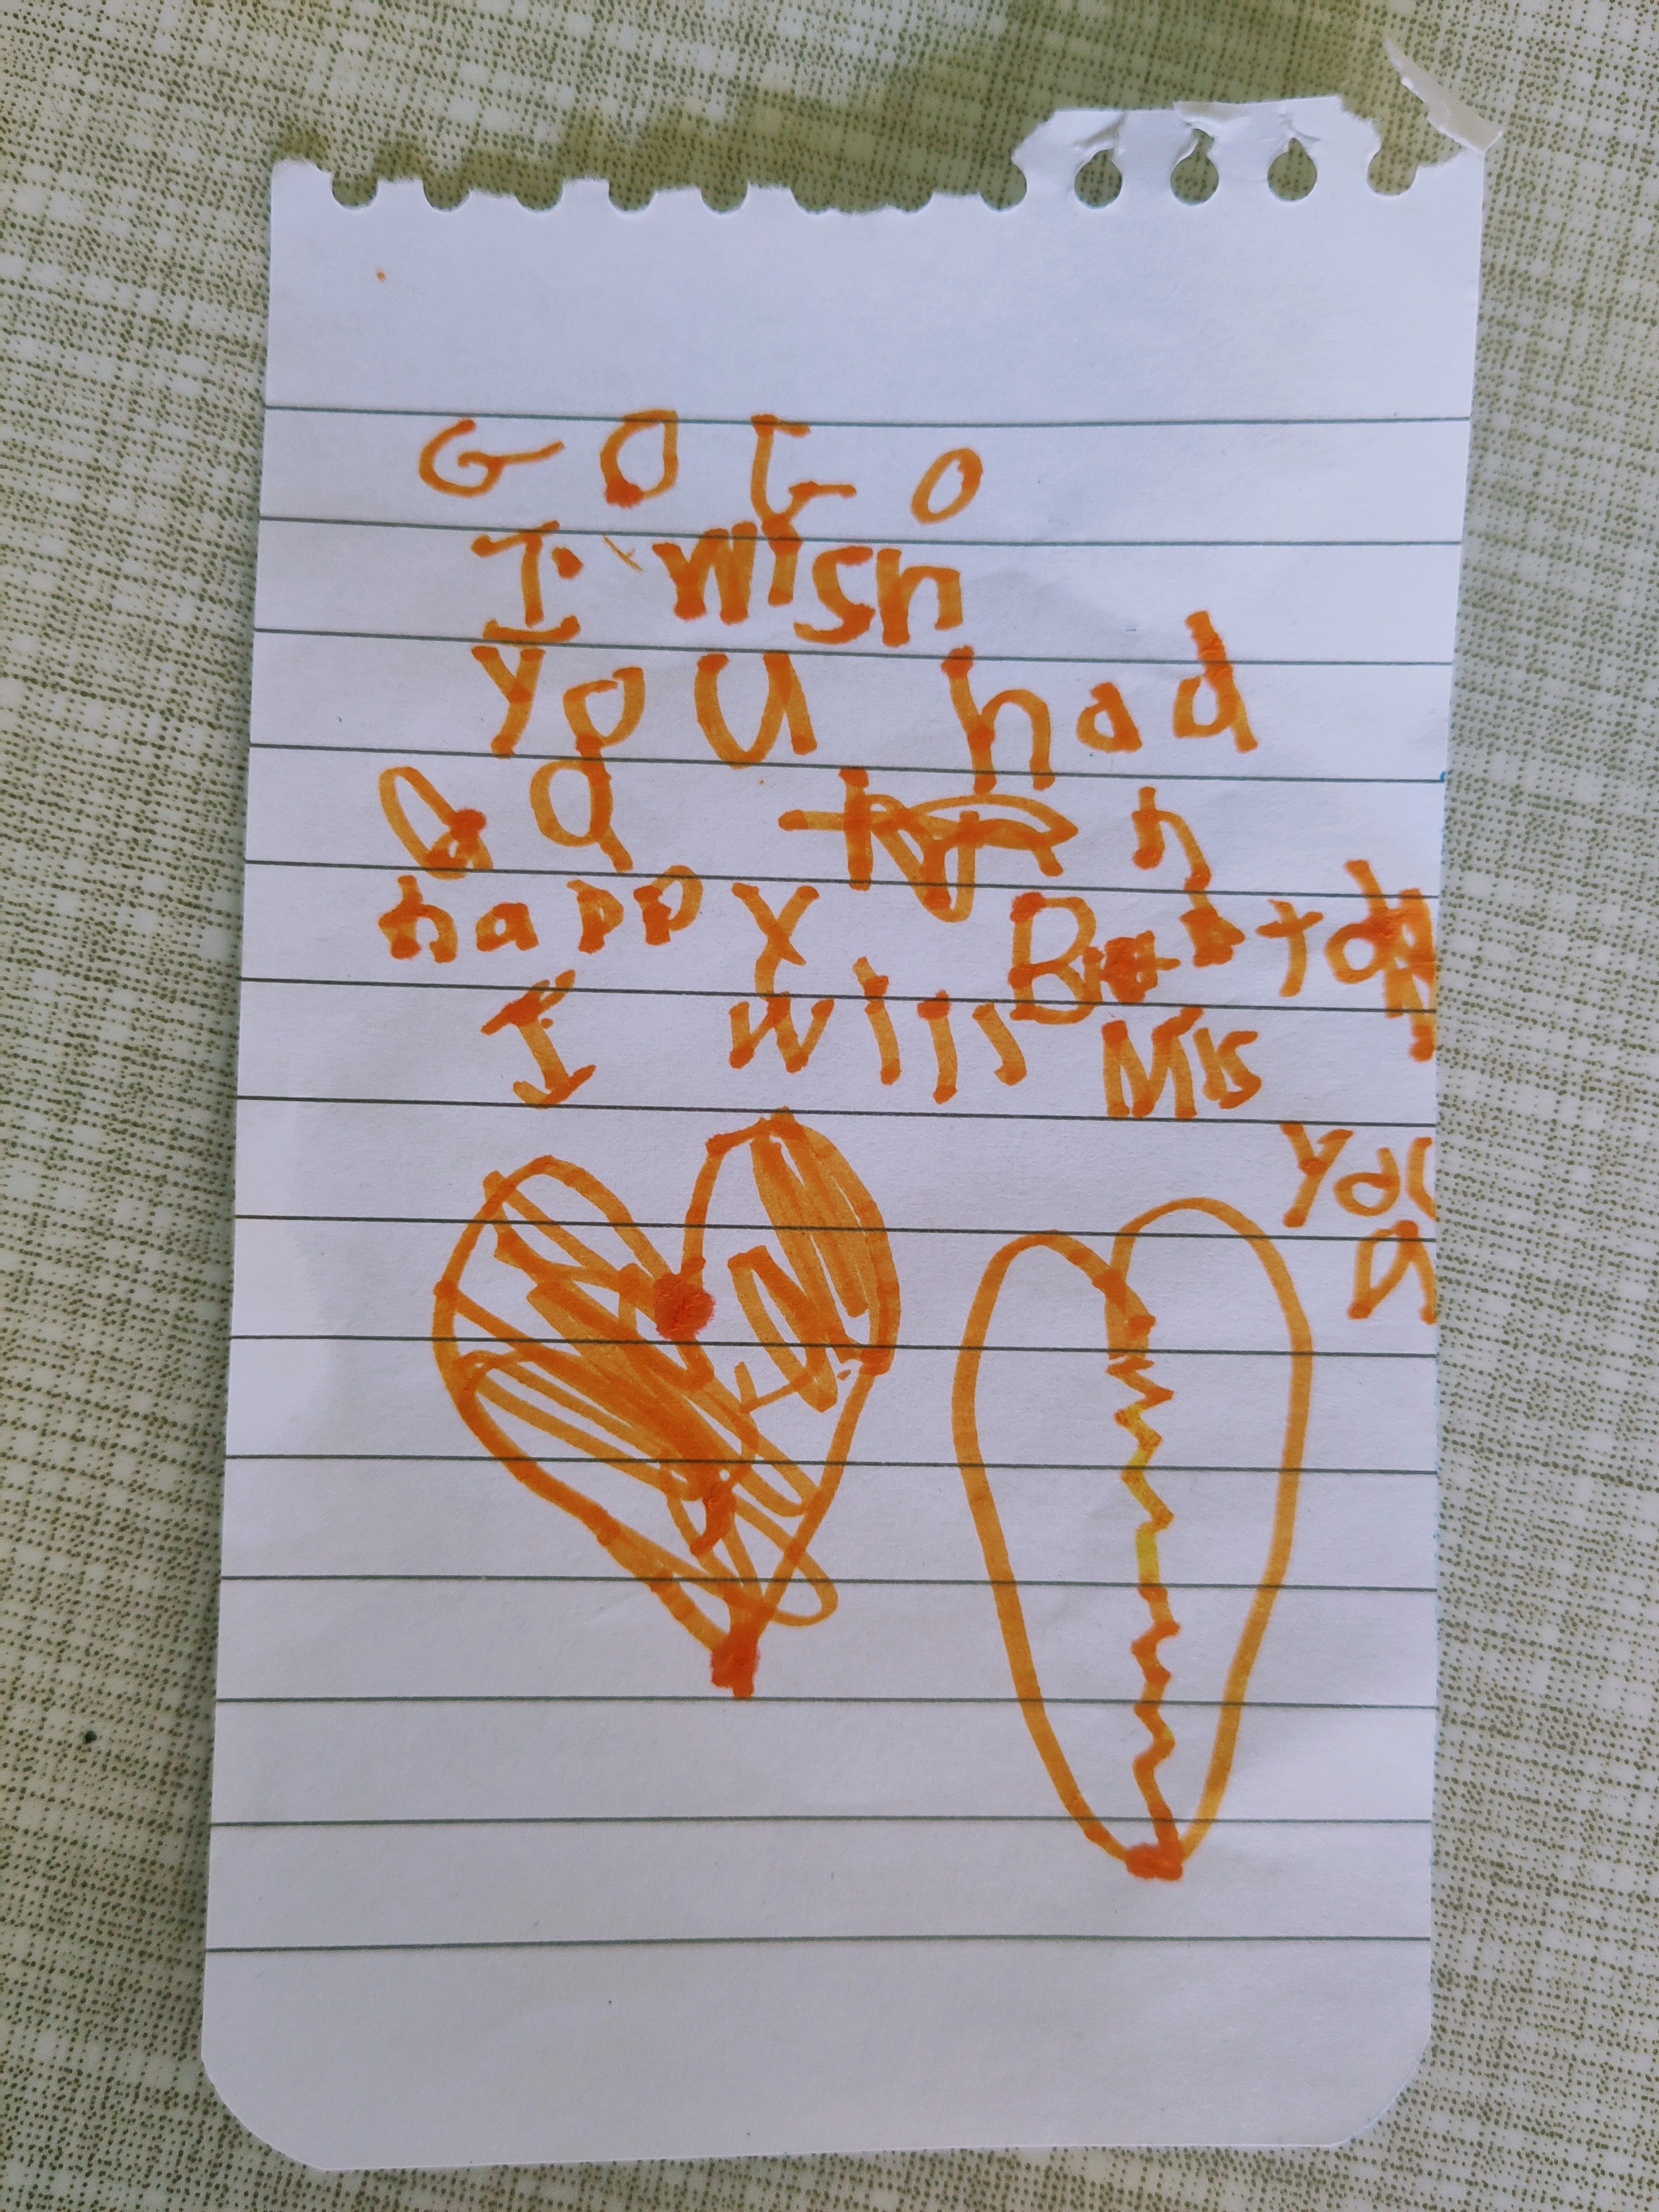 GOGO
I wish
you had
a a n
happy
I will Mis
you